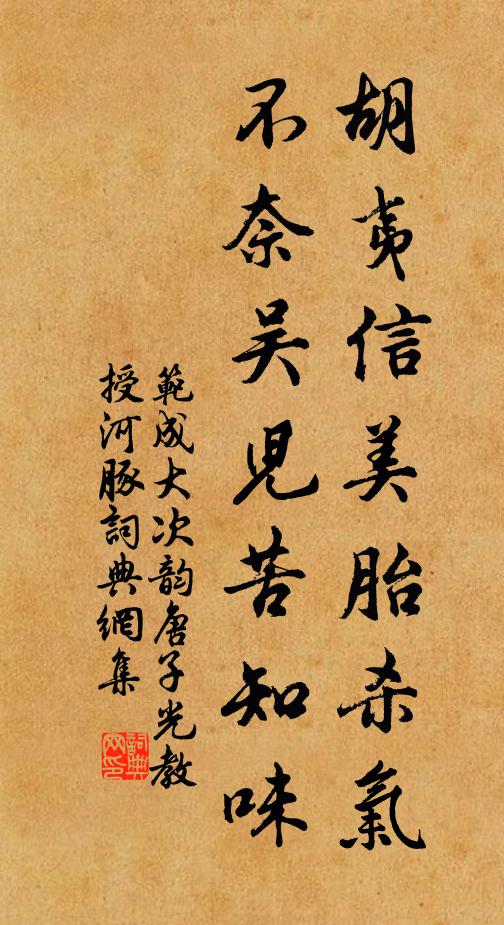 胡夷信美胎杀氣
不奈吴児苦知味
範成大次韵唐子光教
授河豚詞典網集
詞典
网印